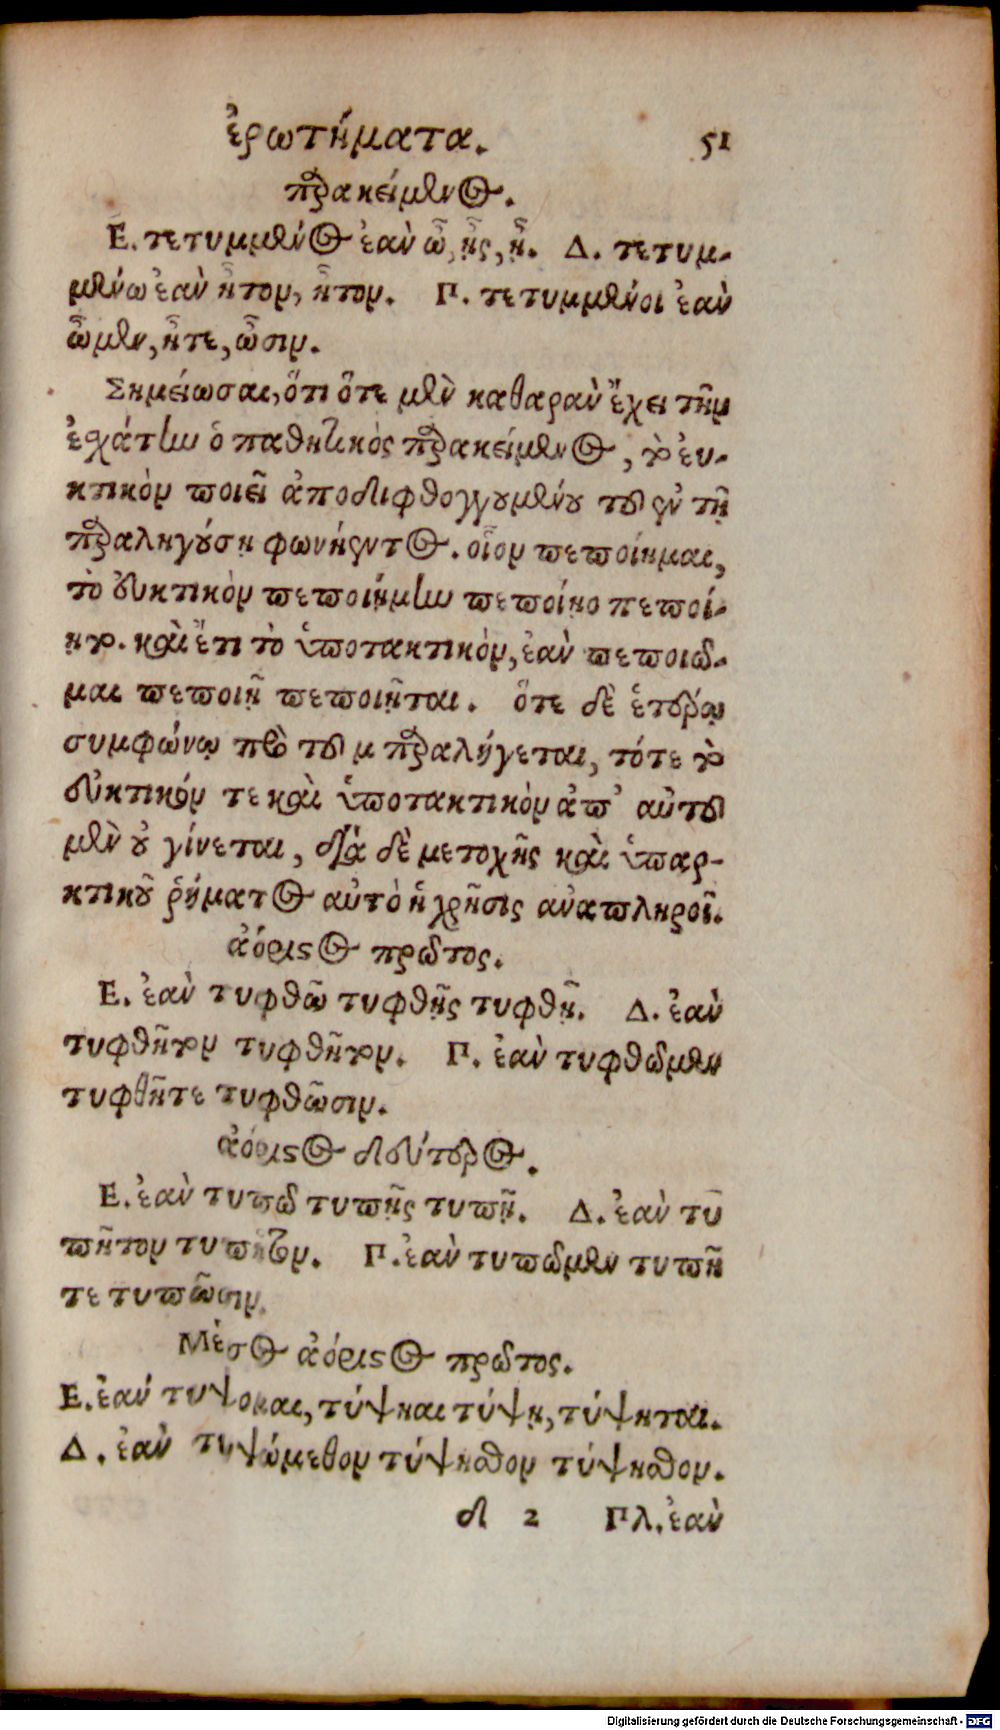 ἐρωτήματα. 51
παρακείμενος.
Ε. τετυμμένος ἐὰν ὦ, ᾖς, ᾖ. Δ. τετυμ-
μένω ἐὰν ἦτον, ἦτον. Π. τετυμμένοι ἐὰν
ὦμεν, ἦτε, ὦσιν.
Σημείωσαι, ὅτι ὅτε μὲν καθαρὰν ἔχει τὴν
ἐσχάτην ὁ παθητικὸς παρακείμενος, τὸ ἐυ-
κτικὸν ποιεῖ ἀποδιφθογγουμένου τοῦ ἐν τῇ
παραληγούσῃ φωνήεντος. οἷον πεποίημαι,
τὸ εὐκτικὸν πεποιήμην πεποίηο πεποί-
ητο. καὶ ἔτι τὸ ὑποτακτικὸν, ἐὰν πεποιῶ-
μαι πεποιῇ πεποιῆται. ὅτε δὲ ἑτέρῳ
συμφώνῳ πρὸ τοῦ μ παραλήγεται, τότε τὸ
εὐκτικόν τε καὶ ὑποτακτικὸν ἀπ' αὐτοῦ
μὲν οὐ γίνεται, διὰ δὲ μετοχῆς καὶ ὑπαρ-
κτικοῦ ῥήματος αὐτὸ ἡ χρῆσις ἀναπληροῖ.
ἀόριστος πρῶτος.
Ε. ἐὰν τυφθῶ τυφθῇς τυφθῇ. Δ. ἐὰν
τυφθῆτον τυφθῆτον. Π. ἐὰν τυφθῶμεν
τυφθῆτε τυφθῶσιν.
ἀόριστος δεύτερος.
Ε. ἐὰν τυπῶ τυπῇς τυπῇ. Δ. ἐὰν τυ
πῆτον τυπῆτον. Π. ἐὰν τυπῶμεν τυπῆ
τε τυπῶσιν.
Μέσος ἀόριστος πρῶτος.
Ε. ἐάν τύψομαι, τύψηαι τύψῃ, τύψηται.
Δ. ἐὰν τυψώμεθον τύψησθον τύψησθον.
δ 2 Πλ. ἐὰν
Digitalisierung gefördert durch die Deutsche Forschungsgemeinschaft - DFG